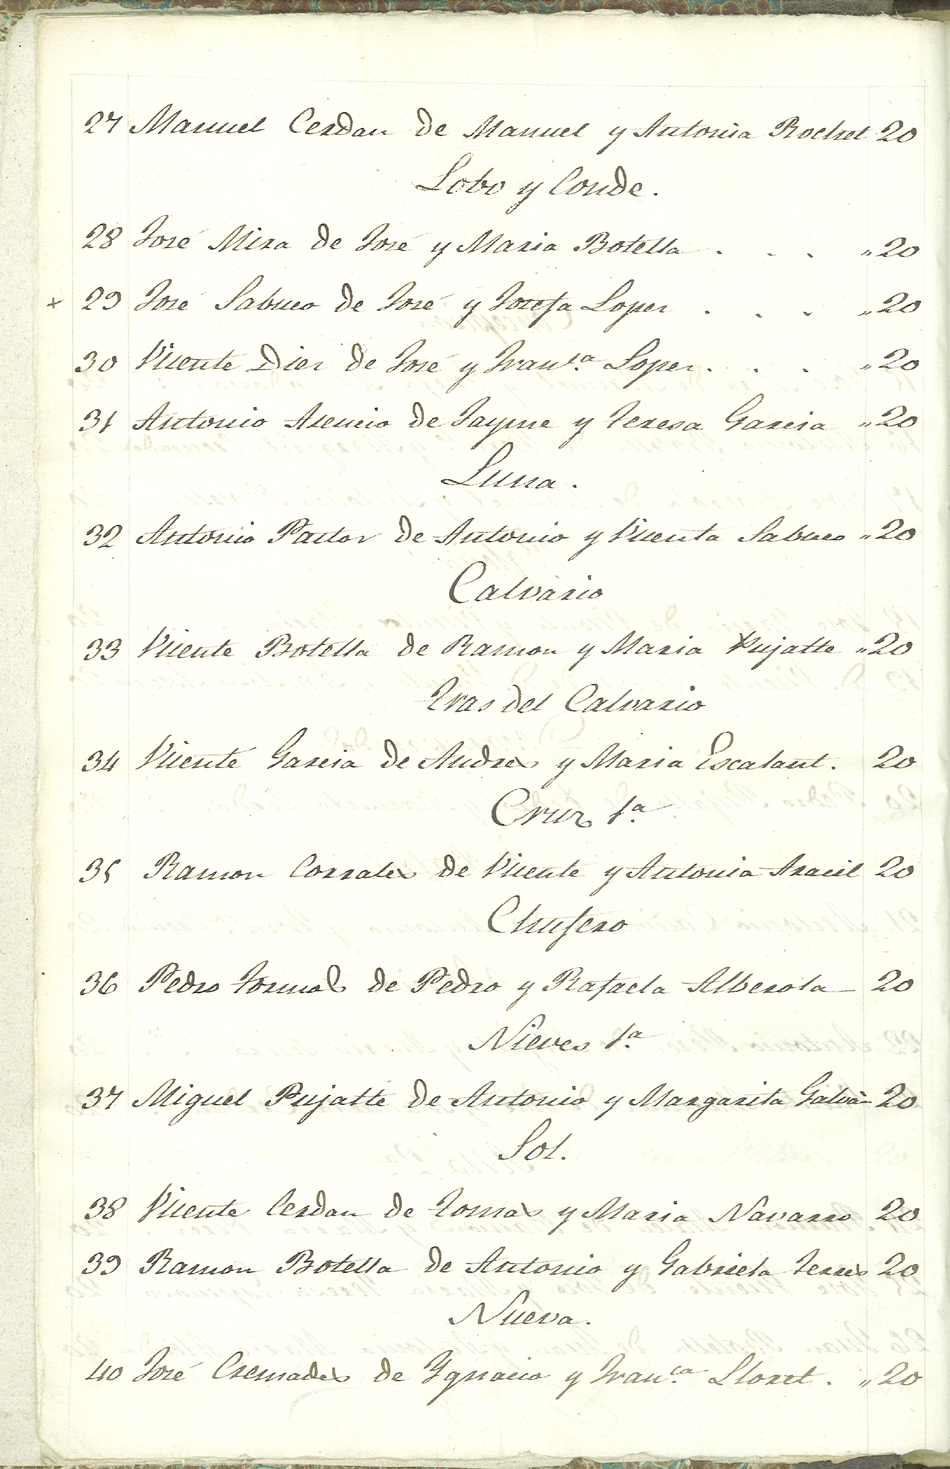 27 Manuel Cerdan de Manuel y Antonia Rochel 20
Lobo y Conde.
28 José Mira de José y Maria Botella . . . „ 20
× 29 José Sabuco de José y Josefa Lopez . . . „ 20
30 Vicente Diez de José y Fran.ca Lopez . . . „ 20
31 Antonio Asencio de Jayme y Teresa Garcia „ 20
Luna.
32 Antonio Pastor de Antonio y Vicenta Sabuco „ 20
Calvario
33 Vicente Botella de Ramon y Maria Pujalte „ 20
Eras del Calvario
34 Vicente Garcia de Andres y Maria Escalant. 20
Cruz 1.a
35 Ramon Corrales de Vicente y Antonia Aracil 20
Chufero
36 Pedro Tormo de Pedro y Rafaela Alberola 20
Nieves 1.a
37 Miguel Pujalte de Antonio y Margarita Galvañ 20
Sol.
38 Vicente Cerdan de Tomas y Maria Navarro 20
39 Ramon Botella de Antonio y Gabriela Terres 20
Nueva.
40 José Cremades de Ygnacio y Fran.ca Lloret . „ 20